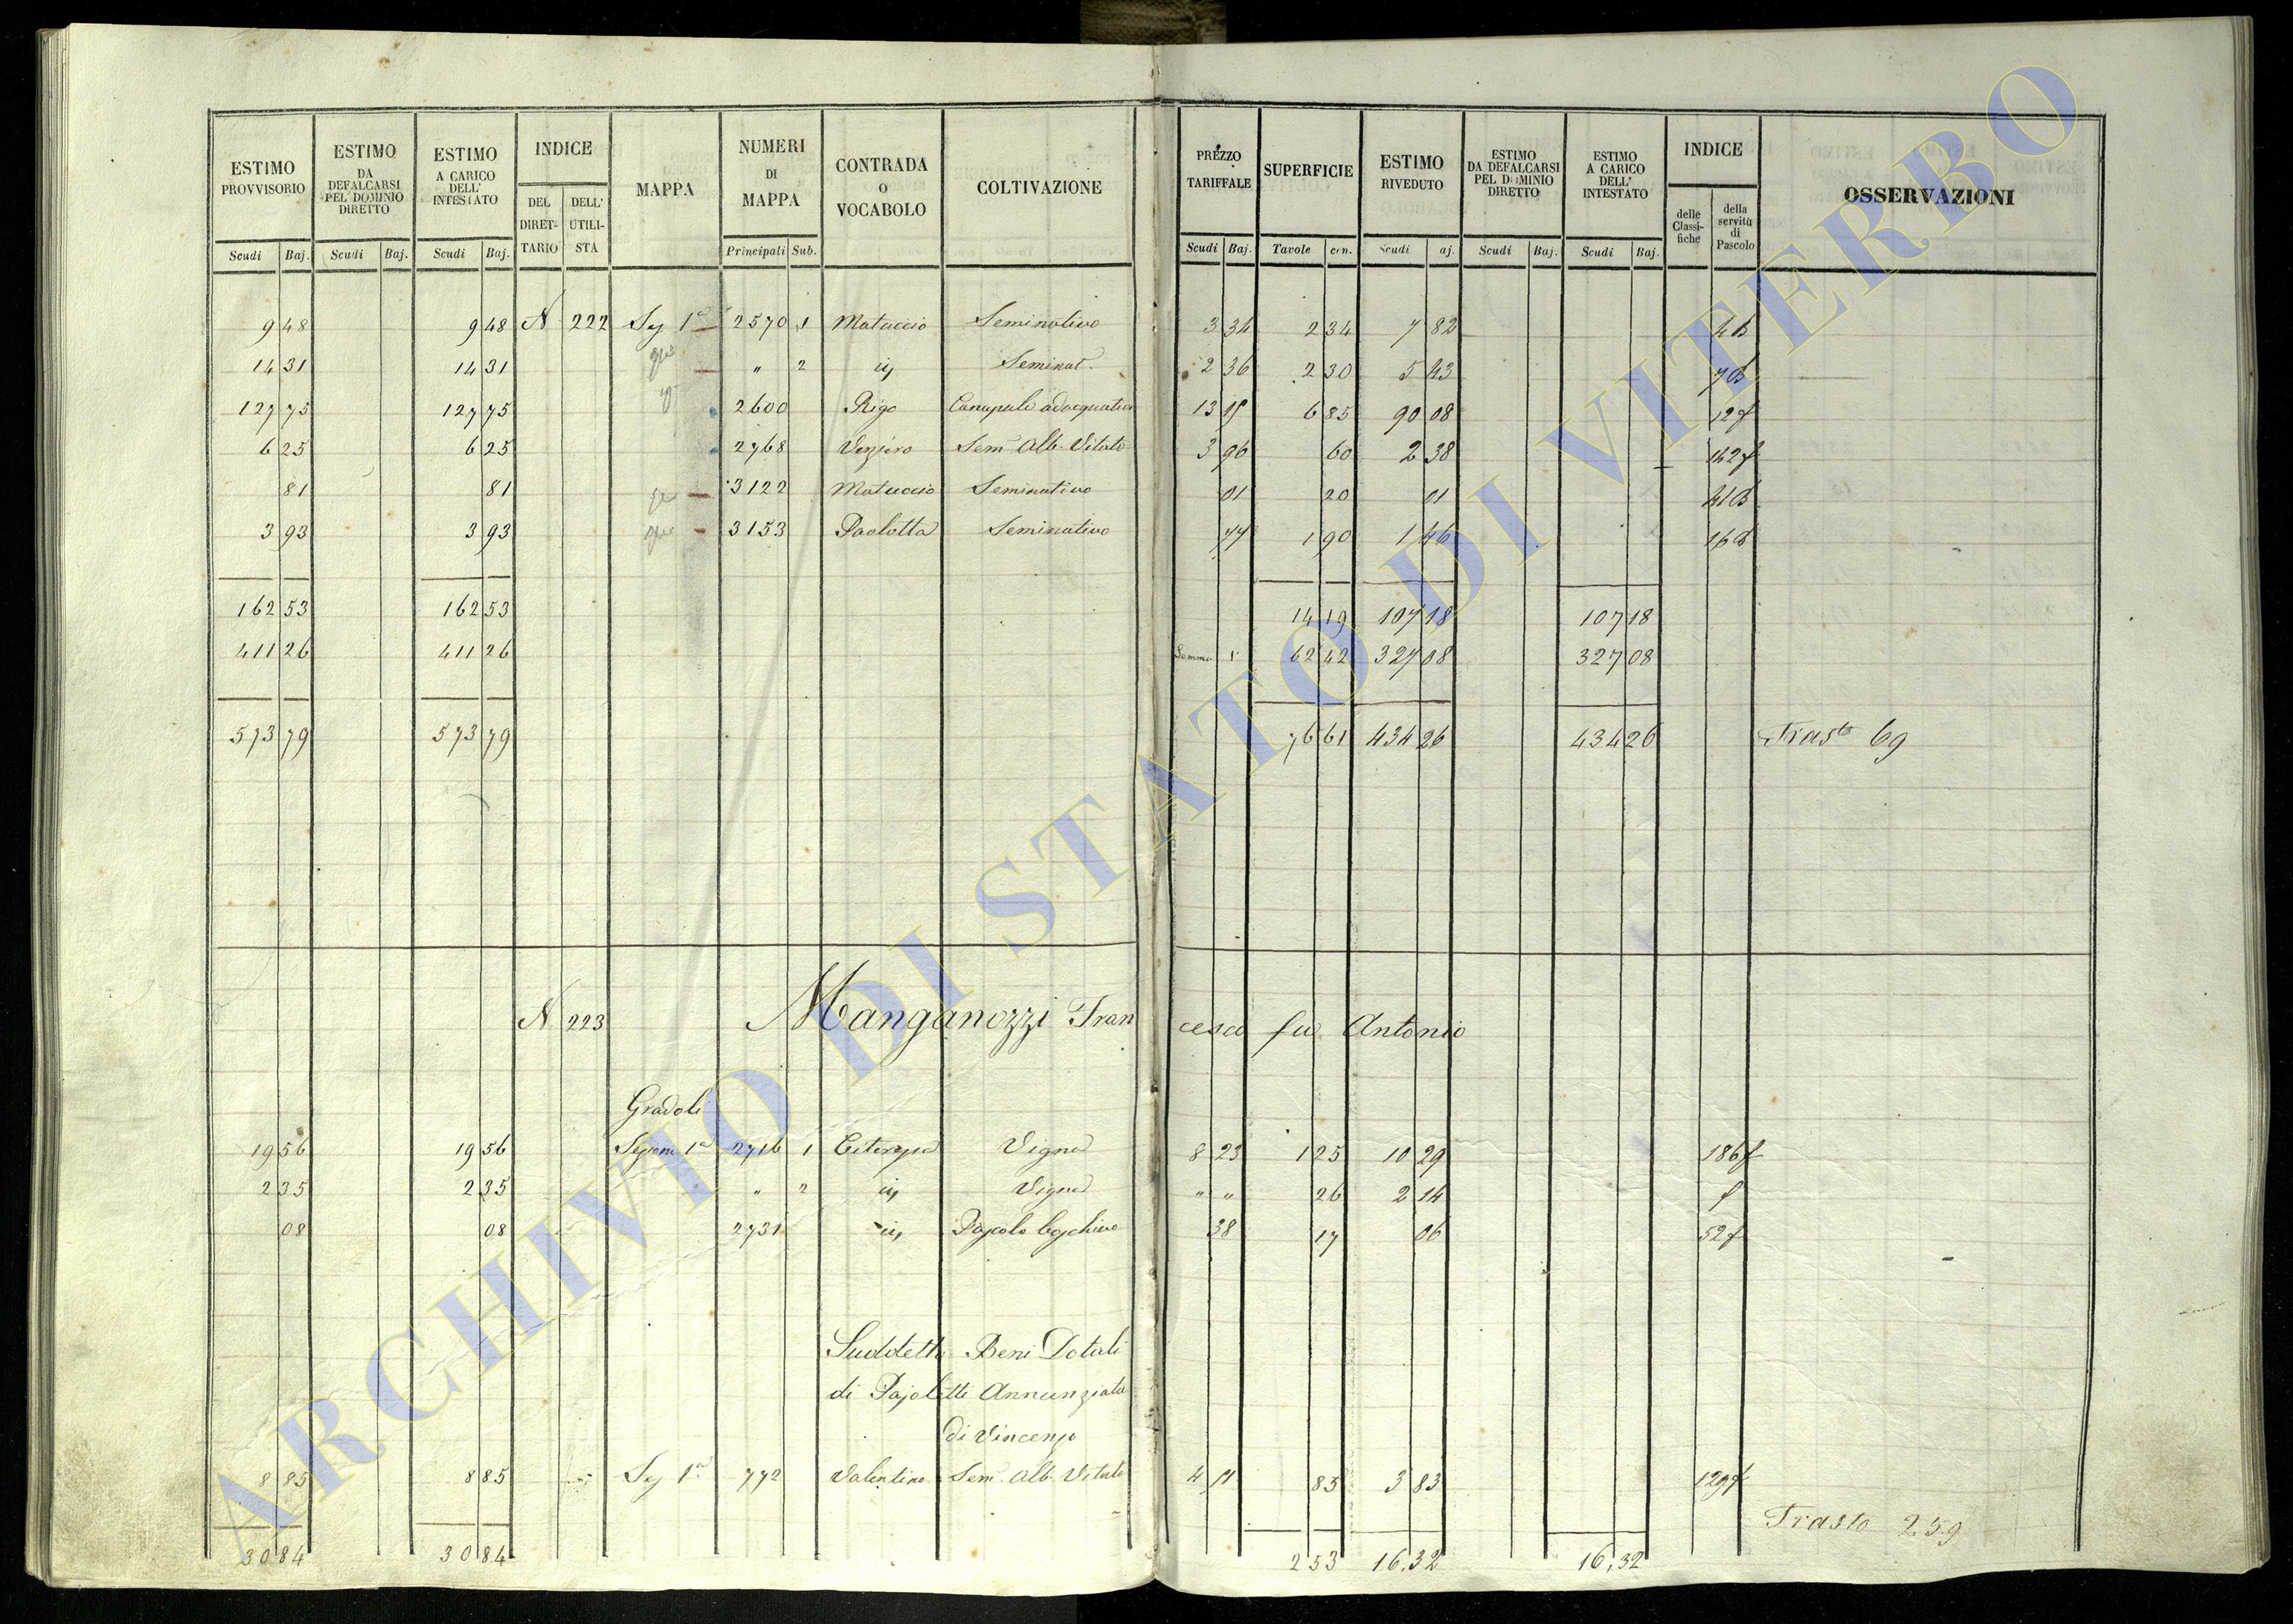 ESTIMO PROVVISORIO | ESTIMO DA DEFALCARSI PEL DOMINIO DIRETTO | ESTIMO A CARICO DELL' INTESTATO | INDICE | MAPPA | NUMERI DI MAPPA | CONTRADA O VOCABOLO | COLTIVAZIONE | PREZZO TARIFFALE | SUPERFICIE | ESTIMO RIVEDUTO | ESTIMO DA DEFALCARSI PEL DOMINIO DIRETTO | ESTIMO A CARICO DELL' INTESTATO | INDICE | OSSERVAZIONI
DEL DIRETTARIO | DELL' UTILISTA | delle Classifiche | della servitù di Pascolo
Scudi | Baj. | Scudi | Baj. | Scudi | Baj. | Principali | Sub. | Scudi | Baj. | Tavole | cen. | Scudi | aj. | Scudi | Baj. | Scudi | Baj.
9 48 | 9 48 | N 222 | Sez 1ª | 2570 1 | Mataccio | Seminativo | 3 34 | 2 34 | 7 82
14 31 | 14 31 | " 2 | Seminat. | 2 36 | 2 30 | 5 43
127 75 | 127 75 | 2600 | Rigo | Canapule adacquativo | 6 85 | 90 08 | 12 f
6 25 | 6 25 | 2768 | Sem Alb. Vitato | 3 96 | 60 | 2 38 | 142 f
81 | 81 | 3122 | Mataccio | Seminativo | 01 | 20 | 01
3 93 | 3 93 | 3153 | Paolotta | Seminativo | 77 | 1 90 | 1 46
162 53 | 162 53 | 14 19 | 107 18 | 107 18
411 26 | 411 26 | Somma | 62 42 | 327 08 | 327 08
573 79 | 573 79 | 76 61 | 434 26 | 434 26 | Trasto 69
N 223 | Manganozzi Francesco fu Antonio
Gradoli
19 56 | 19 56 | Sezione 1ª | 2716 1 | Vigna | 8 23 | 1 25 | 10 29 | 186 f
2 35 | 2 35 | " 2 | Vigna | " " | 26 | 2 14 | f
08 | 08 | 2731 | Pascolo boschivo | 38 | 17 | 06 | 52 f
Suddetto Beni Dotali
di Pajoletti Annunziata
di Vincenzo
8 85 | 8 85 | Sez 1ª | 772 | Valentino | Sem. Alb. Vitato | 4 51 | 85 | 3 83 | 129 f
Trasto 259
30 84 | 30 84 | 2 53 | 16,32 | 16,32
ARCHIVIO DI STATO DI VITERBO